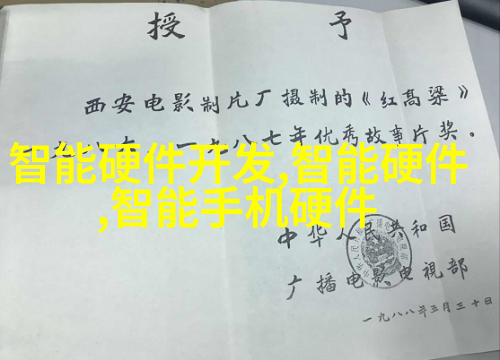 授 予
西安电影制片厂摄制的《红高粱》
一九八七年优秀故事片奖。
智能硬件开发,智能硬件
,智能手机硬件
中华人民共和国
广播电影电视部
一九八八年三月三十日